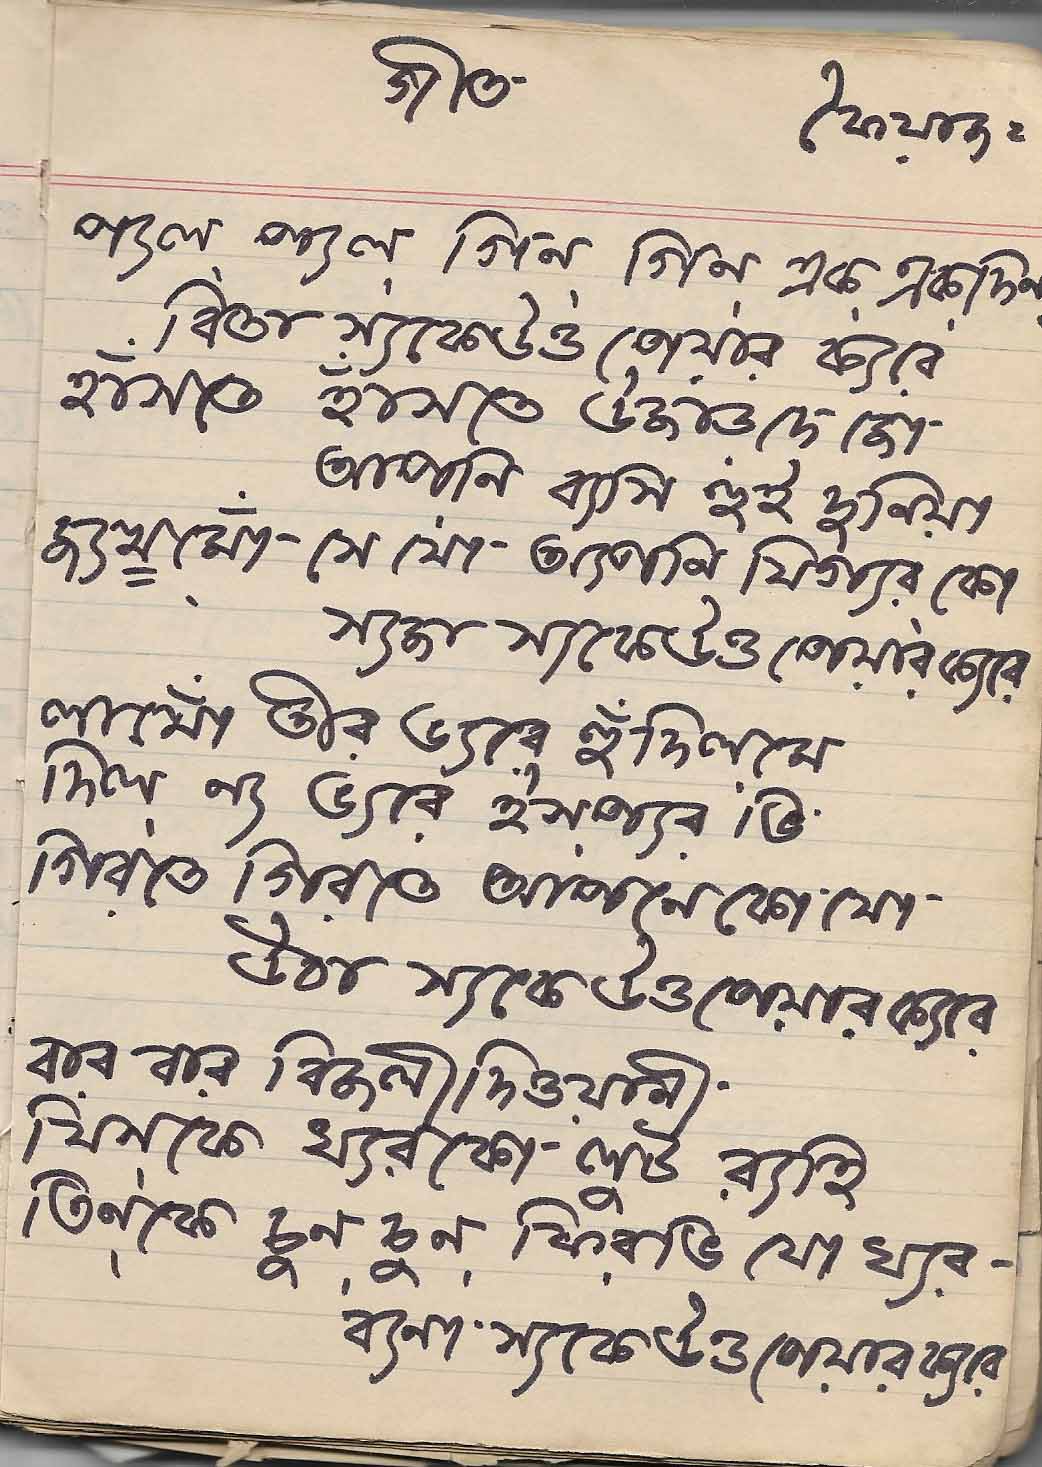 গীত
ফৈয়াজ
প্যল্ প্যল্ গিন্ গিন্ এক্ একদিন্
বিতা স্যকেউও পেয়ার ক্যরে
হাঁসতে হাঁসতে উজাড়দে জো
আপনি ব্যসি হুই দুনিয়া
জ্যখ্মোঁ সে যো আপনি যিগ্যর কো
স্যজা স্যকেউও পেয়ার ক্যরে
লাখোঁ তীর ভ্যরে হুঁ দিল্ মে
দিল্ ন্য ভ্যরে ইস্ প্যর ভি
গির্ তে গির্ তে আপনে কো যো
উঠা স্যকে উও পেয়ার ক্যরে
বার বার বিজলী দিওয়ানী
যিস্ কে ঘ্যর কো লুট র‍্যহি
তিন্ কে চুন্ চুন্ ফির্ ভি যো ঘ্যর
ব্যনা স্যকে উও পেয়ার ক্যরে